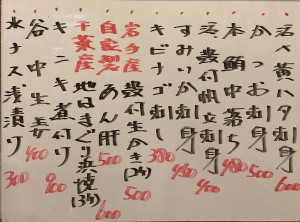 活〆黄ハタ刺 600
かつお刺身 500
本鮪中落ち 480
活殻付帆立刺身 400
すみいか刺身 480
キビナゴ刺し 380
岩手産殻付生かき(2ケ) 500
自家製あん肝 500
千葉産地はまぐり浜焼(3ケ) 600
キンキ煮付け 900
谷中生姜 400
水ナス浅漬り 300